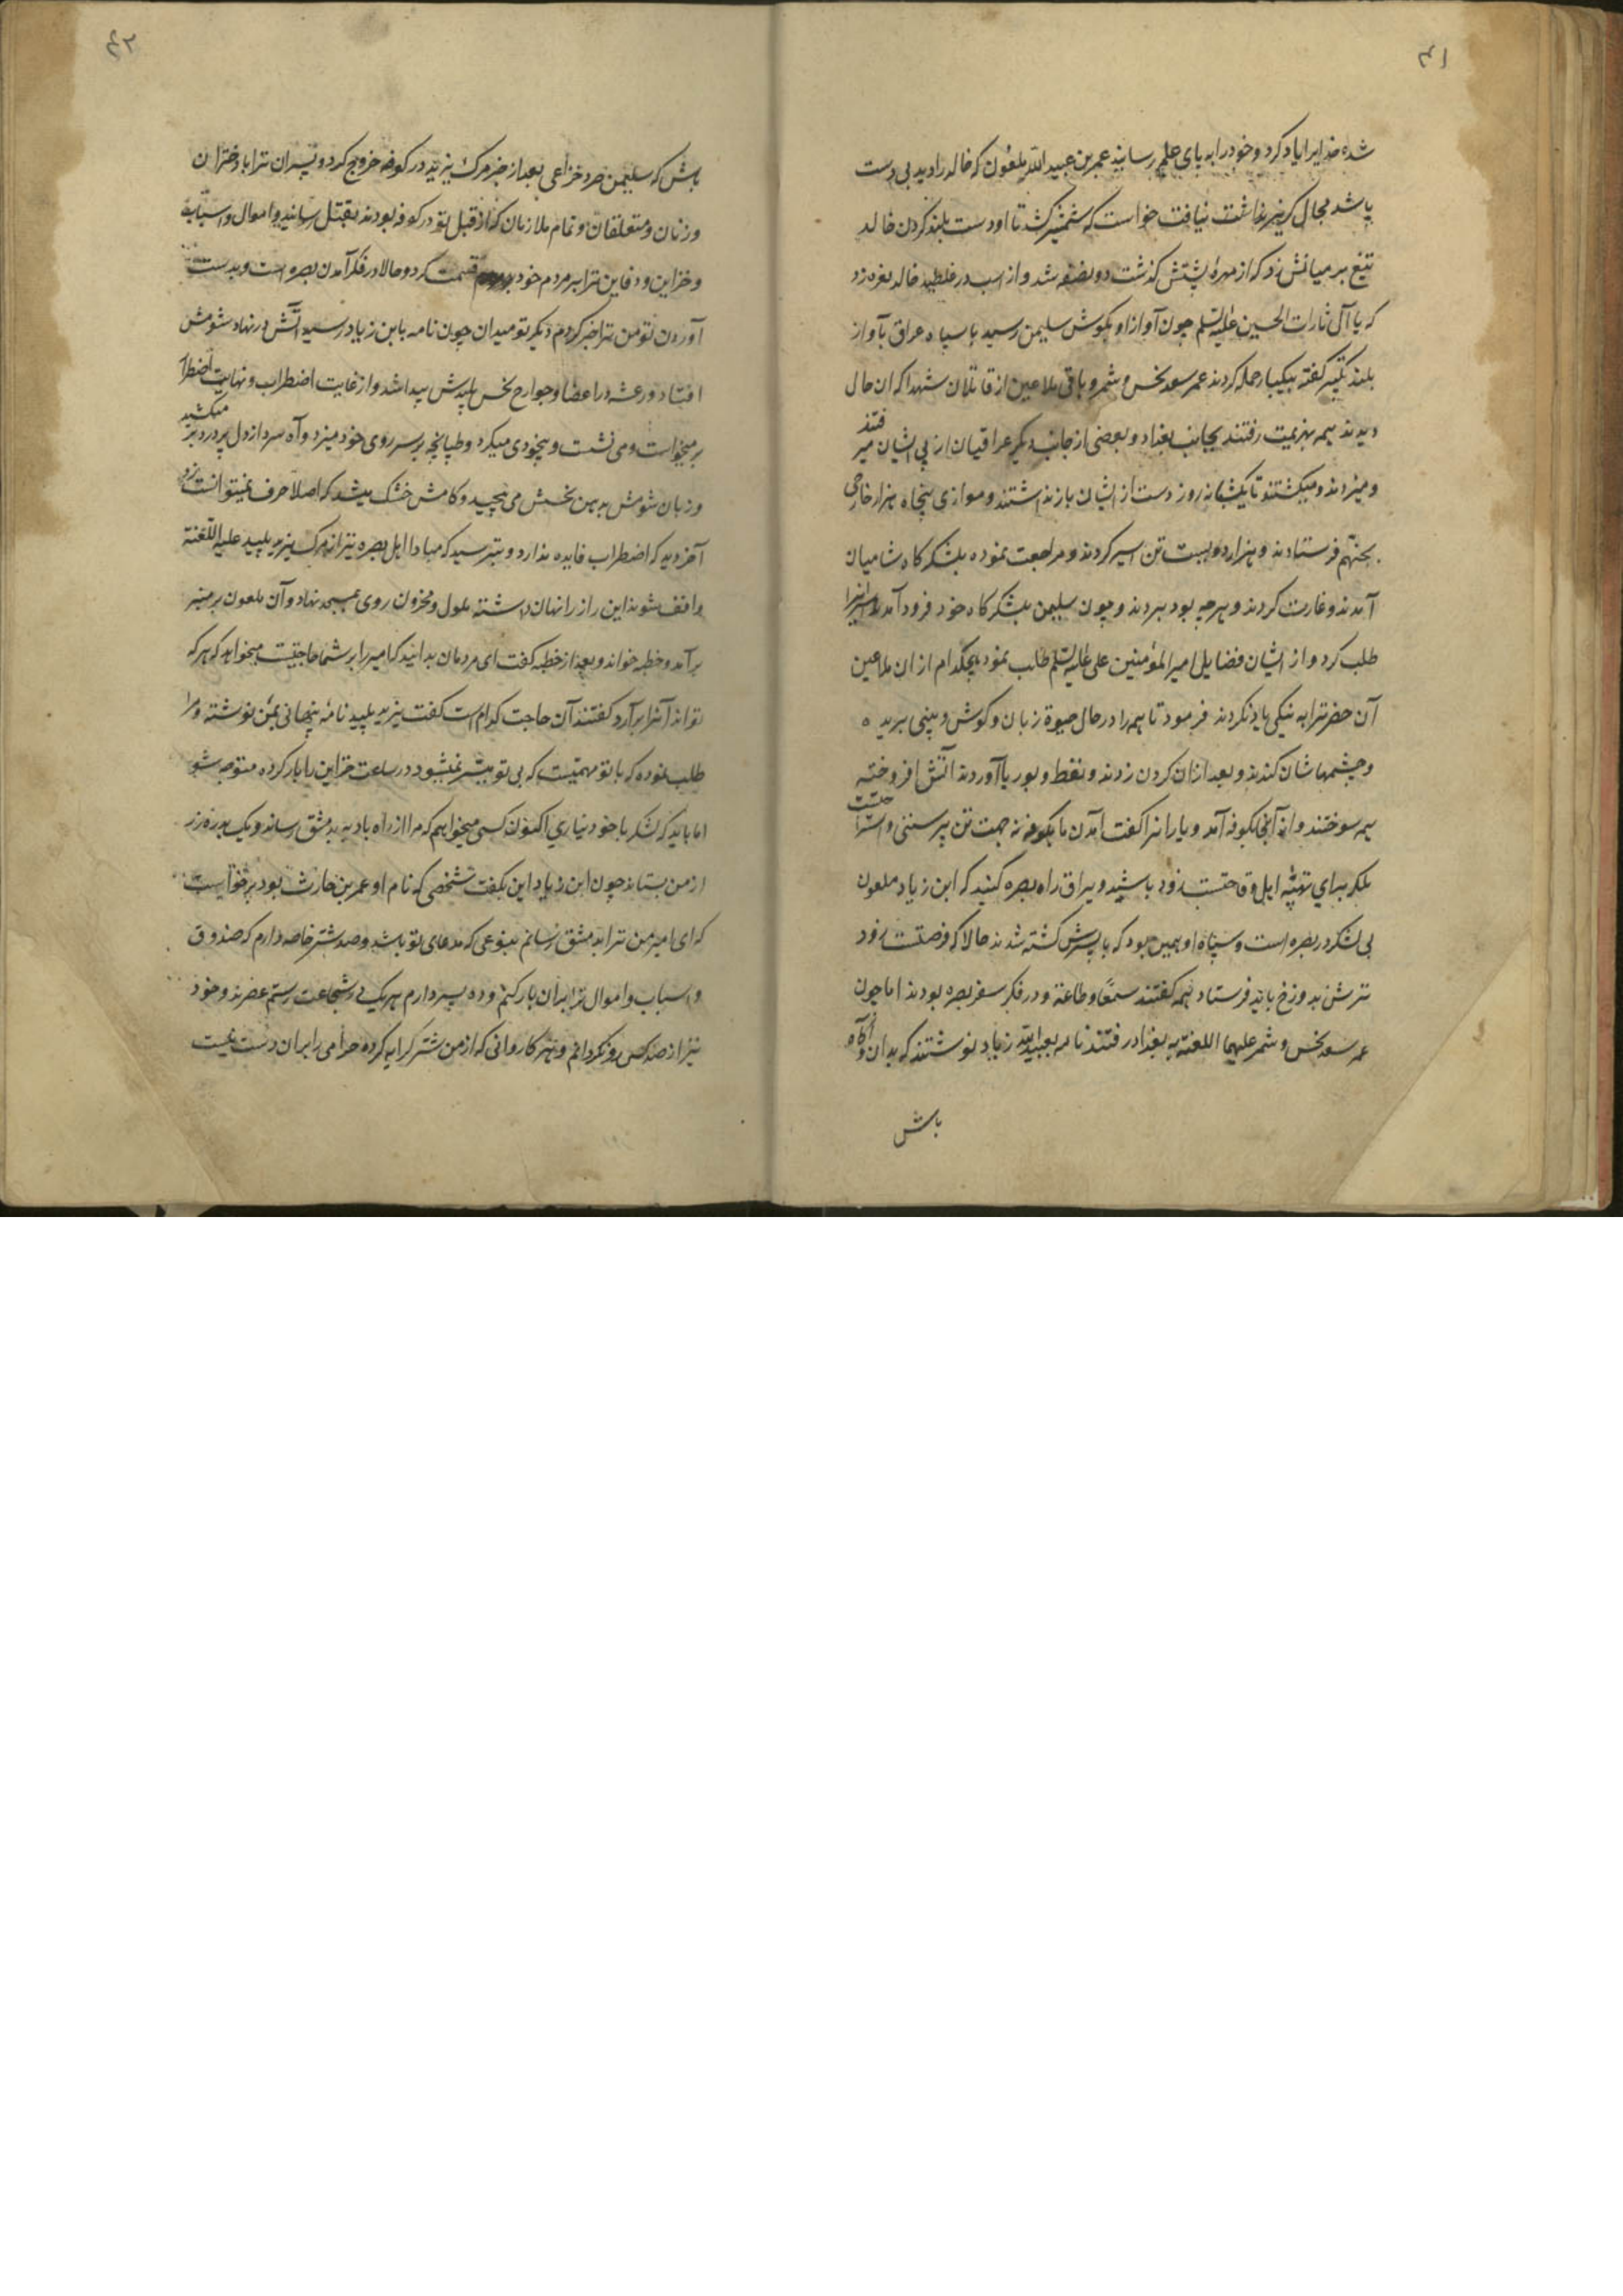 ۴۱
شده خدایرا یاد کرد و خود را به پای علم رسانید عمر بن عبید الله ملعون که خالد را دید بی دست
پا شد مجال گریز نداشت نیافت خواست که شمشیر کشد تا او دست بلند کردن خالد
تیغ بر میانش زد که از مهرهٔ پشتش گذشت دو نصفه شد و از اسب در غلطید خالد نعره زد
که یا آل ثارات الحسین علیه السلم چون آواز او بگوش سلیمن رسید با سپاه عراق بآواز
بلند تکبیر گفته بیکبار حمله کردند عمر سعد نحس و شمر و باقی ملاعین از قاتلان شهدا که ان حال
دیدند همه بهزیمت رفتند بجانب بغداد و بعضی از جانب دیگر عراقیان از پی ایشان میرفتند
و میزدند و میکشتند تا یکشبانه روز دست از ایشان باز نداشتند و موازی پنجاه هزار خارجی
بجهنم فرستادند و هزار و دویست تن اسیر کردند و مراجعت نموده بلشکر کاه شامیان
آمدند و غارت کردند و هرچه بود بردند و چون سلیمن بلشکر کاه خود فرود آمد اسیرانرا
طلب کرد و از ایشان فضایل امیر المؤمنین علی علیه السلم طلب نمود هیچکدام از ان ملاعین
آن حضرترا به نیکی یاد نکردند فرمود تا همه را در حال حیوة زبان و کوش و بینی بریده
و چشمهاشان کندند و بعد از ان کردن زدند و نفط و بوریا آوردند آتش افروخته
همه سوختند و از آنجا بکوفه آمد و یارانرا کفت آمدن ما بکوفه نه جهت تن پرستی و استراحتست
بلکه برای تهیّه اهل وقاحتست زود باشید و یراق راه بصره کنید که ابن زیاد ملعون
بی لشکر در بصره است و سپاه او همین بود که با پسرش کشته شدند حالا که فرصتست زود
ترش بدوزخ باید فرستاد همه کفتند سمعًا و طاعة و در فکر سفر بصره بودند اما چون
عمر سعد نحس و شمر علیهما اللعنه به بغداد رفتند نامه بعبید الله زیاد نوشتند که بدان و آگاه
باش
۴۲
باش که سلیمن صرد خزاعی بعد از خبر مرک یزید در کوفه خروج کرد و پسران ترا با دختران
و زنان و متعلقان و تمام ملازمان که از قبل تو در کوفه بودند بقتل رسانید و اموال و اسباب
و خزاین و دفاین ترا بر مردم خود قسمت کرد و حالا در فکر آمدن بصره است و بدست
آوردن تو من ترا خبر کردم دیگر تو میدان چون نامه بابن زیاد رسید آتش در نهاد شومش
افتاد و رعشه در اعضا و جوارح نحس پلیدش پیدا شد و از غایت اضطراب و نهایت اضطرار
بر میخواست و می نشست و بیخودی میکرد و طپانچه بر سر روی خود میزد و آه سرد از دل پر درد بر میکشید
و زبان شومش بدهن نحسش می پیچید و کامش خشک میشد که اصلا حرف نمیتوانست زد
آخر دید که اضطراب فایده ندارد و بترسید که مبادا اهل بصره نیز از مرک یزید پلید علیه اللعنه
واقف شوند این راز را نهان داشته ملول و محزون روی بمسجد نهاد و آن ملعون بر منبر
برآمد و خطبه خواند و بعد از خطبه کفت ای مردمان بدانید که امیر را بر شما حاجتیست میخواهد که هر که
تواند آنرا برآرد کفتند آن حاجت کدام است کفت یزید پلید نامهٔ پنهانی بمن نوشته و مرا
طلب نموده که با تو مهمیست که بی تو میسّر نمیشود در ساعت خزاین را بار کرده متوجه شو
اما باید که لشکر با خود نیاری اکنون کسی میخواهم که مرا از راه بادیه بدمشق رساند و یک بدره زر
از من بستاند چون ابن زیاد این بکفت شخصی که نام او عمر بن حارث بود برخواست
که ای امیر من ترا بدمشق رسانم بنوعی که مدعای تو باشد و صد شتر خاصه دارم که صندوق
و اسباب و اموال ترا بران بار کنم و ده پسر دارم هر یک در شجاعت رستم عصرند و خود
نیز از صد کس رو نکردانم و هر کاروانی که از من شتر کرایه کرده حرامی را بران دست نیست